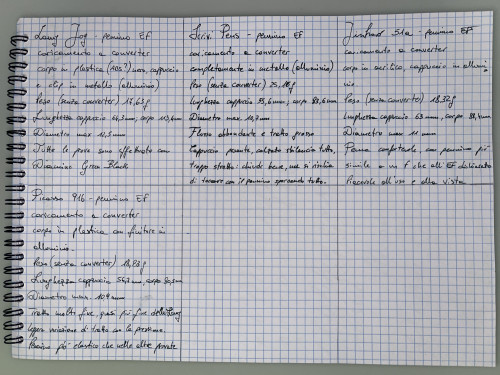 Lang Jog - pennino EF
caricamento a converter
corpo in plastica (ABS?) nera, cappuccio
e clip in metallo (alluminio)
Peso (senza converter) 17,63g
Lunghezza cappuccio mm, corpo mm
Diametro max 12,5 mm
Tutte le prove sono effettuate con
Diamine Green Black
Picasso 916 - pennino EF
caricamento a converter
corpo in plastica con finiture in
alluminio.
Peso (senza converter) 18,88g
Lunghezza cappuccio mm, corpo mm
Diametro max. mm
Tratto molto fine, quasi più fine della Lang
leggera variazione di tratto con la pressione.
Pennino più elastico che nelle altre provate
Pens - pennino EF
caricamento a converter
completamente in metallo (alluminio)
Peso (senza converter) 25,18g
Lunghezza cappuccio 55,6 mm, corpo 83,6mm
Diametro max 10,7mm
Flusso abbondante e tratto grosso
Cappuccio pesante, calzato sbilancia tutto,
troppo stretto: chiude bene, ma si rischia
di toccare con il pennino sporcando tutto.
Jinhao 51a - pennino EF
caricamento a converter
corpo in acrilico, cappuccio in allumi
nio
Peso (senza converter) 18,32g
Lunghezza cappuccio 63 mm, corpo mm
Diametro max 11 mm
Penna confortevole, con pennino più
simile a un F che all'EF dichiarato
Piacevole all'uso e alla vista